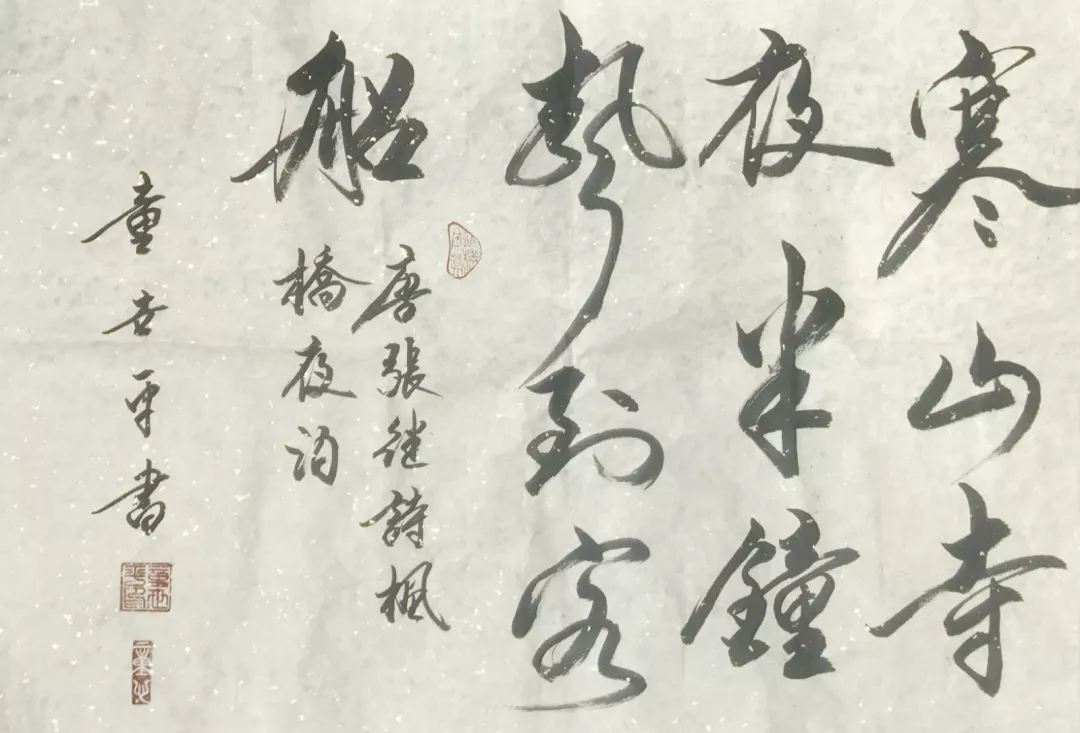 寒山寺
夜半鐘
聲到客
船
唐張继詩楓
橋夜泊
童世平書